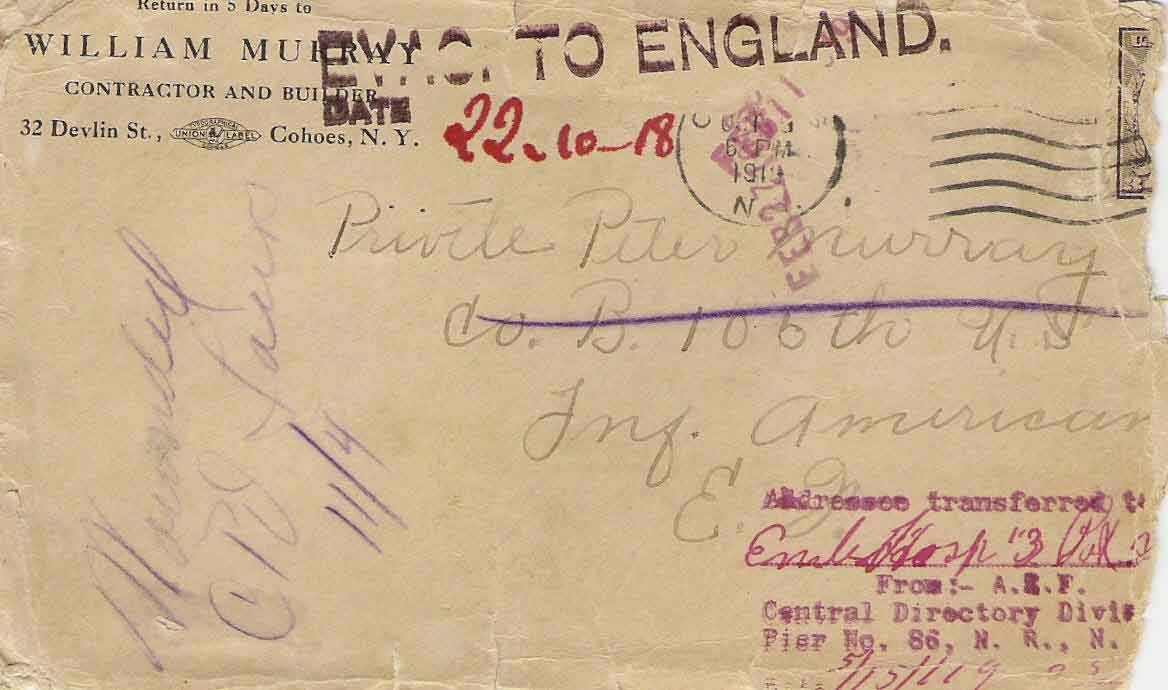 Return in 5 Days to
WILLIAM MURRAY
CONTRACTOR AND BUILDER
32 Devlin St., UNION LABEL Cohoes, N. Y.
EVAC. TO ENGLAND.
DATE 22-10-18
6 PM
1919
N
FEB 27
Private Peter Murray
Co. B. 106th U.S
Inf. American
E.
Wounded
11/4
Addressee transferred
Hosp 3
From:- A.E.F.
Central Directory Divis
Pier No. 86, N. R., N.
5/15/19